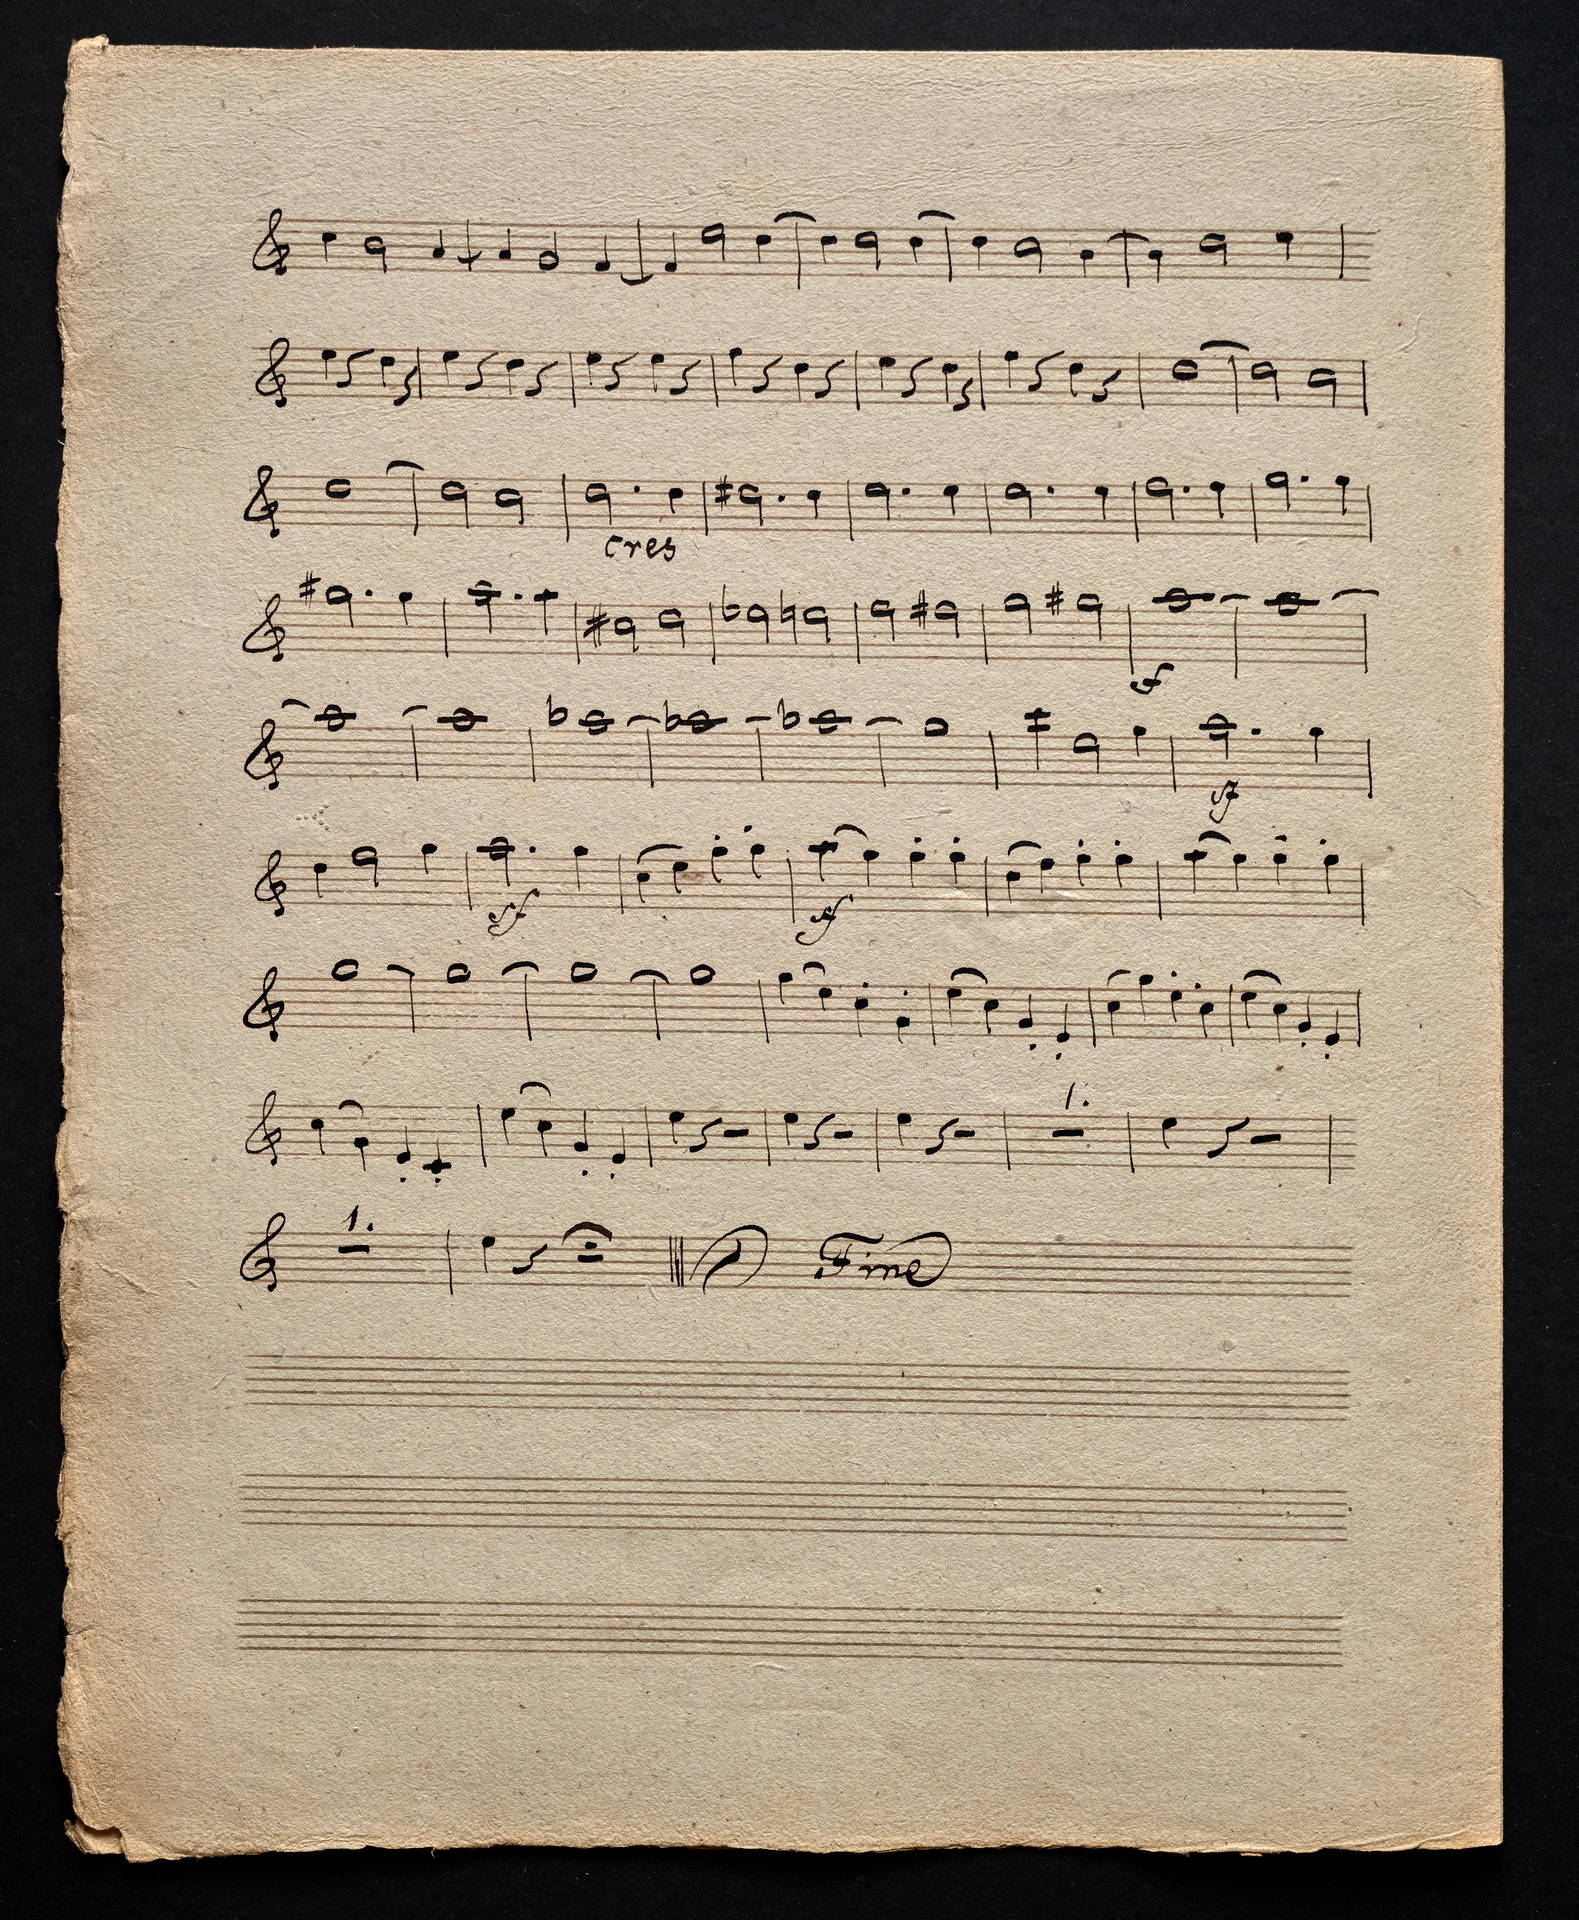 cres
f
sf
sf sf
1.
1. Fine